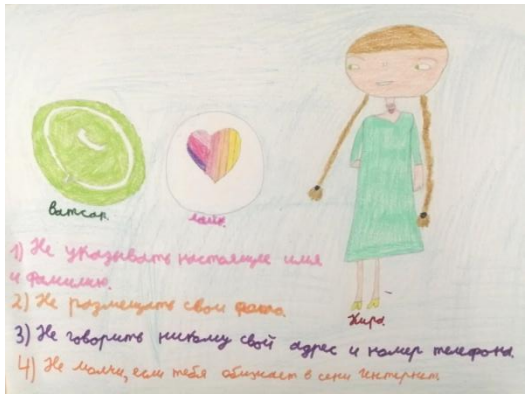 Ватсап.
лайк.
Кира.
1) Не указывать настоящие имя
и фамилию.
2) Не размещать свои фото.
3) Не говорить никому свой адрес и номер телефона.
4) Не молчи, если тебя обижает в сети интернет